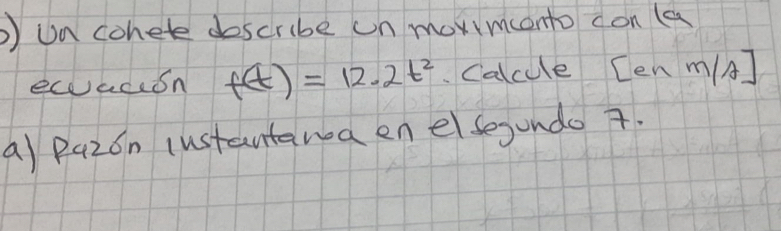 b) Un cohete describe un movimiento con la
ecuación f(t) = 12.2t². Calcule [en m/s]
a) Razón instantanea en el segundo 7.